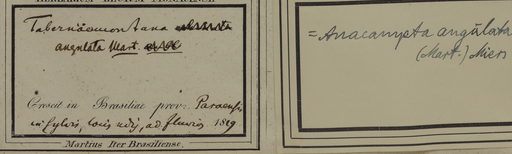 Tabernaemontana
angulata Mart.
Crescit in Brasiliae prov. Paraensi
in sylvis, locis udis, ad fluvios. 1819
Martius Iter Brasiliense.
= Anacampta angulata
(Mart.) Miers